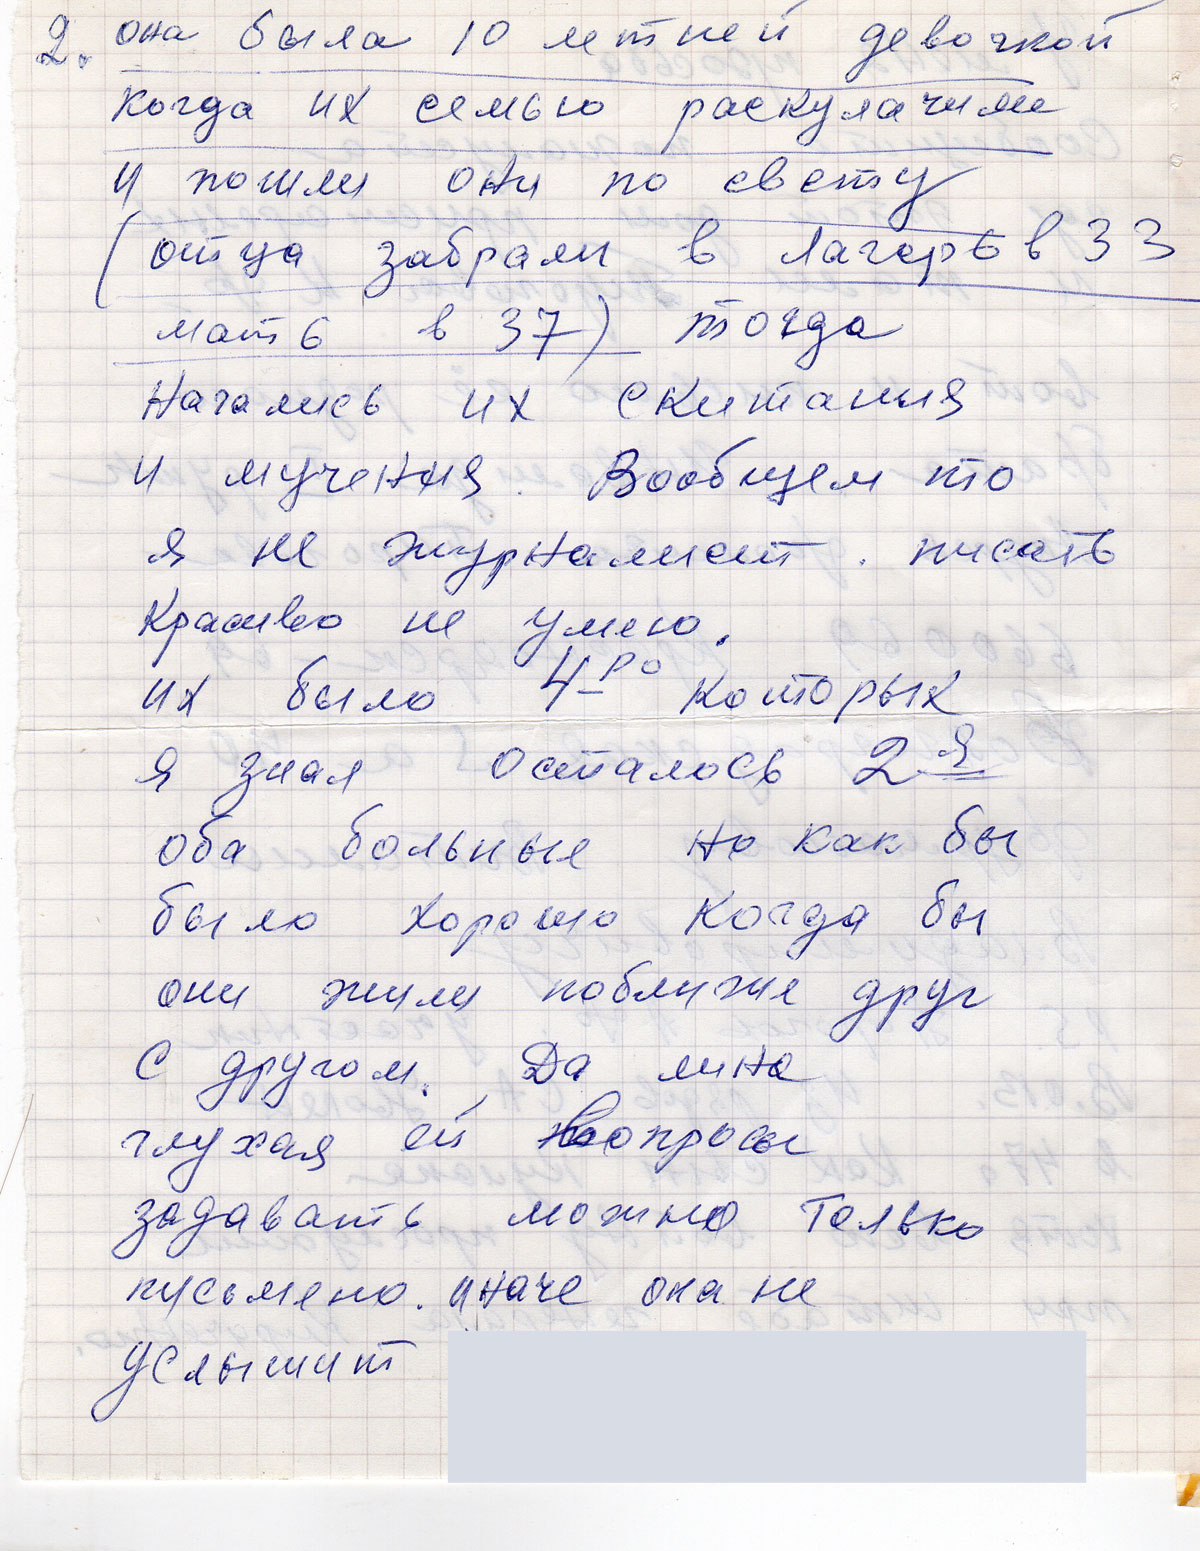 2. она была 10 летней девочкой
когда их семью раскулачили
и пошли они по свету
(отца забрали в лагерь в 33
мать в 37) тогда
Начались их скитания
и мучения. Вообщем то
я не журналист. писать
Красиво не умею.
их было 4-ро которых
я знал осталось 2-я
оба больные но как бы
было хорошо когда бы
они жили поближе друг
с другом. Да она
глухая ей вопросы
задавать можно только
письмено. иначе она не
услышит